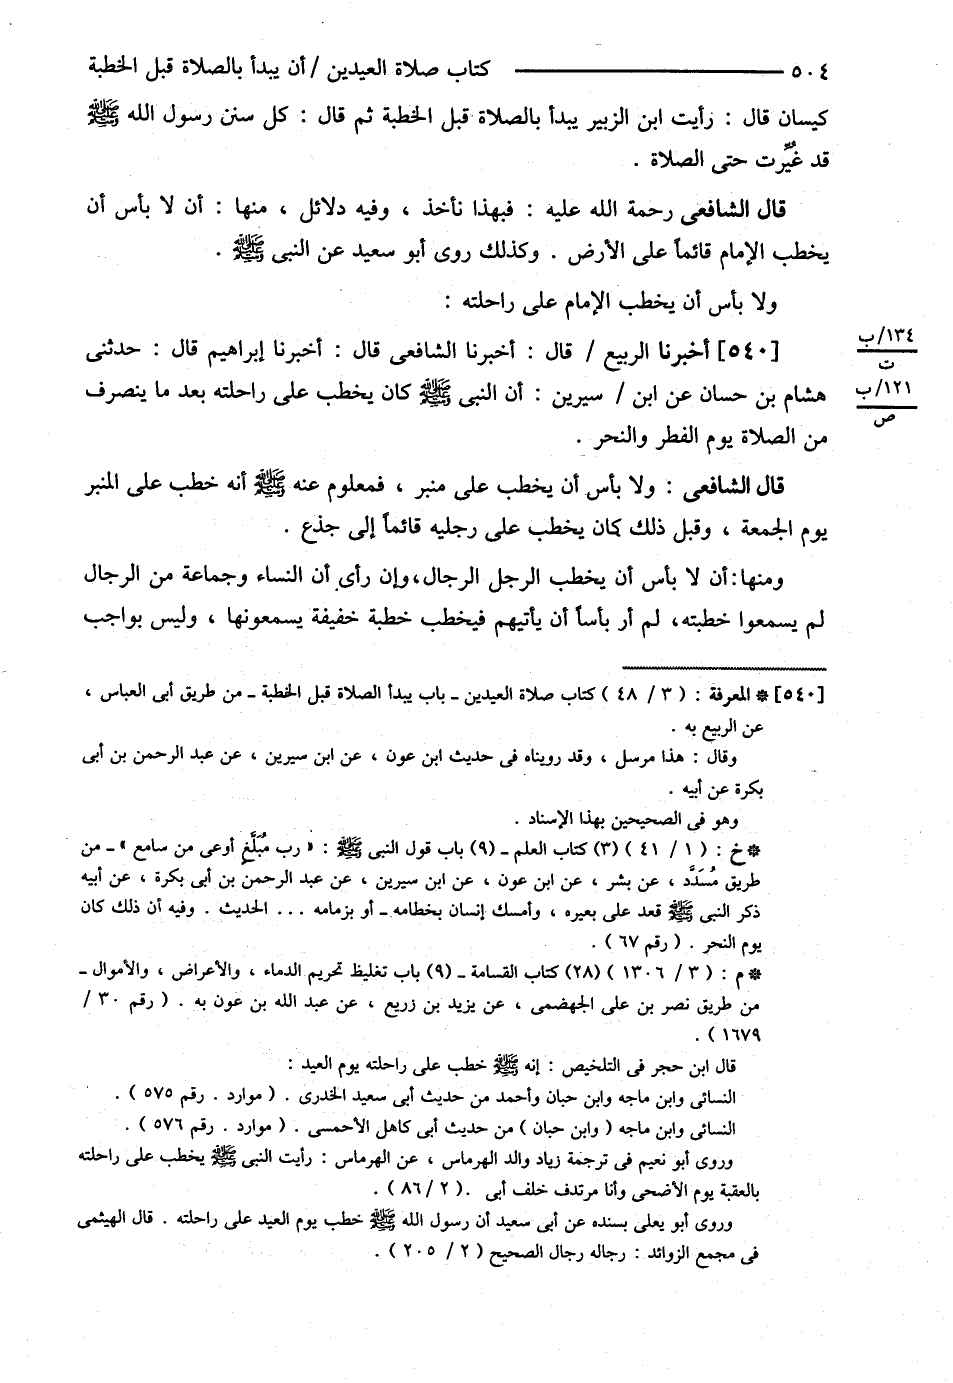 ٥٠٤ ــــــــــــــــ كتاب صلاة العيدين / أن يبدأ بالصلاة قبل الخطبة
كيسان قال : رأيت ابن الزبير يبدأ بالصلاة قبل الخطبة ثم قال : كل سنن رسول الله ﷺ
قد غُيِّرت حتى الصلاة .
قال الشافعى رحمة الله عليه : فبهذا نأخذ ، وفيه دلائل ، منها : أن لا بأس أن
يخطب الإمام قائماً على الأرض . وكذلك روى أبو سعيد عن النبى ﷺ .
ولا بأس أن يخطب الإمام على راحلته :
[٥٤٠] أخبرنا الربيع / قال : أخبرنا الشافعى قال : أخبرنا إبراهيم قال : حدثنى
١٣٤/ب
ت
هشام بن حسان عن ابن / سيرين : أن النبى ﷺ كان يخطب على راحلته بعد ما ينصرف
١٢١/ب
ص
من الصلاة يوم الفطر والنحر .
قال الشافعى : ولا بأس أن يخطب على منبر ، فمعلوم عنه ﷺ أنه خطب على المنبر
يوم الجمعة ، وقبل ذلك كان يخطب على رجليه قائماً إلى جذع .
ومنها: أن لا بأس أن يخطب الرجل الرجال، وإن رأى أن النساء وجماعة من الرجال
لم يسمعوا خطبته، لم أر بأساً أن يأتيهم فيخطب خطبة خفيفة يسمعونها ، وليس بواجب
[٥٤٠] * المعرفة : ( ٣ / ٤٨ ) كتاب صلاة العيدين ـ باب يبدأ الصلاة قبل الخطبة ـ من طريق أبى العباس ،
عن الربيع به .
وقال : هذا مرسل ، وقد رويناه فى حديث ابن عون ، عن ابن سيرين ، عن عبد الرحمن بن أبى
بكرة عن أبيه .
وهو فى الصحيحين بهذا الإسناد .
* خ : ( ١ / ٤١ ) (٣) كتاب العلم ـ (٩) باب قول النبى ﷺ : « رب مُبَلَّغٍ أوعى من سامع » ـ من
طريق مُسَدَّد ، عن بشر ، عن ابن عون ، عن ابن سيرين ، عن عبد الرحمن بن أبى بكرة ، عن أبيه
ذكر النبى ﷺ قعد على بعيره ، وأمسك إنسان بخطامه ـ أو بزمامه ... الحديث . وفيه أن ذلك كان
يوم النحر . ( رقم ٦٧ ) .
* م : ( ٣ / ١٣٠٦ ) (٢٨) كتاب القسامة ـ (٩) باب تغليظ تحريم الدماء ، والأعراض ، والأموال ـ
من طريق نصر بن على الجهضمى ، عن يزيد بن زريع ، عن عبد الله بن عون به . ( رقم ٣٠ /
١٦٧٩ ) .
قال ابن حجر فى التلخيص : إنه ﷺ خطب على راحلته يوم العيد :
النسائى وابن ماجه وابن حبان وأحمد من حديث أبى سعيد الخدرى . ( موارد . رقم ٥٧٥ ) .
النسائى وابن ماجه ( وابن حبان ) من حديث أبى كاهل الأحمسى . ( موارد . رقم ٥٧٦ ) .
وروى أبو نعيم فى ترجمة زياد والد الهرماس ، عن الهرماس : رأيت النبى ﷺ يخطب على راحلته
بالعقبة يوم الأضحى وأنا مرتدف خلف أبى . ( ٢ /٨٦ ) .
وروى أبو يعلى بسنده عن أبى سعيد أن رسول الله ﷺ خطب يوم العيد على راحلته . قال الهيثمى
فى مجمع الزوائد : رجاله رجال الصحيح ( ٢ / ٢٠٥ ) .